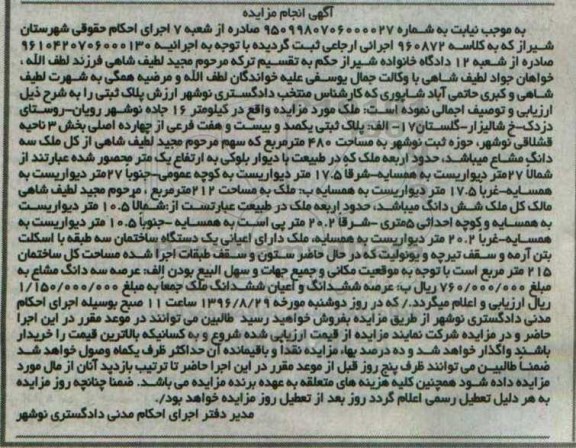 آگهی انجام مزایده
به موجب نیابت به شماره ۹۵۰۹۹۸۰۷۰۶۰۰۰۰۲۷ صادره از شعبه ۷ اجرای احکام حقوقی شهرستان
شیراز که به کلاسه ۹۶۰۸۷۲ اجرائی ارجاعی ثبت گردیده با توجه به اجرائیه ۹۶۱۰۴۲۰۷۰۶۰۰۰۱۳۰
صادره از شعبه ۱۲ دادگاه خانواده شیراز حکم به تقسیم ترکه مرحوم مجید لطیف شاهی فرزند لطف الله ،
خواهان جواد لطیف شاهی با وکالت جمال یوسفی علیه خواندگان لطف الله و مرضیه همگی به شهرت لطیف
شاهی و کبری حاتمی آباد شاپوری که کارشناس منتخب دادگستری نوشهر ارزش پلاک ثبتی را به شرح ذیل
ارزیابی و توصیف اجمالی نموده است: ملک مورد مزایده واقع در کیلومتر ۱۶ جاده نوشهر رویان-روستای
دزدک-خ شالیزار-گلستان۱۷- الف پلاک ثبتی یکصد و بیست و هفت فرعی از چهارده اصلی بخش ۳ ناحیه
قشلاقی نوشهر، حوزه ثبت نوشهر به مساحت ۴۸۰ مترمربع که سهم مرحوم مجید لطیف شاهی از کل ملک سه
دانگ مشاع میباشد، حدود اربعه ملک که در طبیعت با دیوار بلوکی به ارتفاع یک متر محصور شده عبارتند از
شمالاً ۲۷متر دیواریست به همسایه-شرقاً ۱۷.۵ متر دیواریست به کوچه عمومی-جنوباً ۲۷متر دیواریست به
همسایه-غرباً ۱۷.۵ متر دیواریست به همسایه ب: ملک به مساحت ۲۱۲مترمربع ، مرحوم مجید لطیف شاهی
مالک کل ملک شش دانگ میباشد، حدود اربعه ملک در طبیعت عبارتست از :شمالاً ۱۰.۵ متر دیواریست
به همسایه و کوچه احداثی ۵متری -شرقاً ۲۰.۲ متر پی است به همسایه -جنوباً ۱۰.۵ متر دیواریست به
همسایه-غرباً ۲۰.۲ متر دیواریست به همسایه، ملک دارای اعیانی یک دستگاه ساختمان سه طبقه با اسکلت
بتن آرمه و سقف تیرچه و یونولیت که در حال حاضر ستون و سقف طبقات اجرا شده مساحت کل ساختمان
۲۱۵ متر مربع است با توجه به موقعیت مکانی و جمیع جهات و سهل البیع بودن الف: عرصه سه دانگ مشاع به
مبلغ ۷۶۰/۰۰۰/۰۰۰ ریال ب: عرصه ششدانگ و اعیان ششدانگ ملک جمعاً به مبلغ ۱/۱۵۰/۰۰۰/۰۰۰
ریال ارزیابی و اعلام میگردد./ که در روز دوشنبه مورخه ۱۳۹۶/۸/۲۹ ساعت ۱۱ صبح بوسیله اجرای احکام
مدنی دادگستری نوشهر از طریق مزایده بفروش خواهید رسید طالبین می توانند در موعد مقرر در این اجرا
حاضر و در مزایده شرکت نمایند مزایده از قیمت ارزیابی شده شروع و به کسانیکه بالاترین قیمت را خریدار
باشند واگذار خواهد شد و ده درصد بهاء مزایده نقداً و باقیمانده آن حداکثر ظرف یکماه وصول خواهد شد
ضمناً طالبین می توانند ظرف پنج روز قبل از موعد مقرر در این اجرا حاضر تا ترتیب بازدید آنان از مال مورد
مزایده داده شود همچنین کلیه هزینه های متعلقه به عهده برنده مزایده می باشد. ضمناً چنانچه روز مزایده
به هر دلیل تعطیل رسمی اعلام گردد روز بعد از تعطیل روز مزایده خواهد بود./
مدیر دفتر اجرای احکام مدنی دادگستری نوشهر